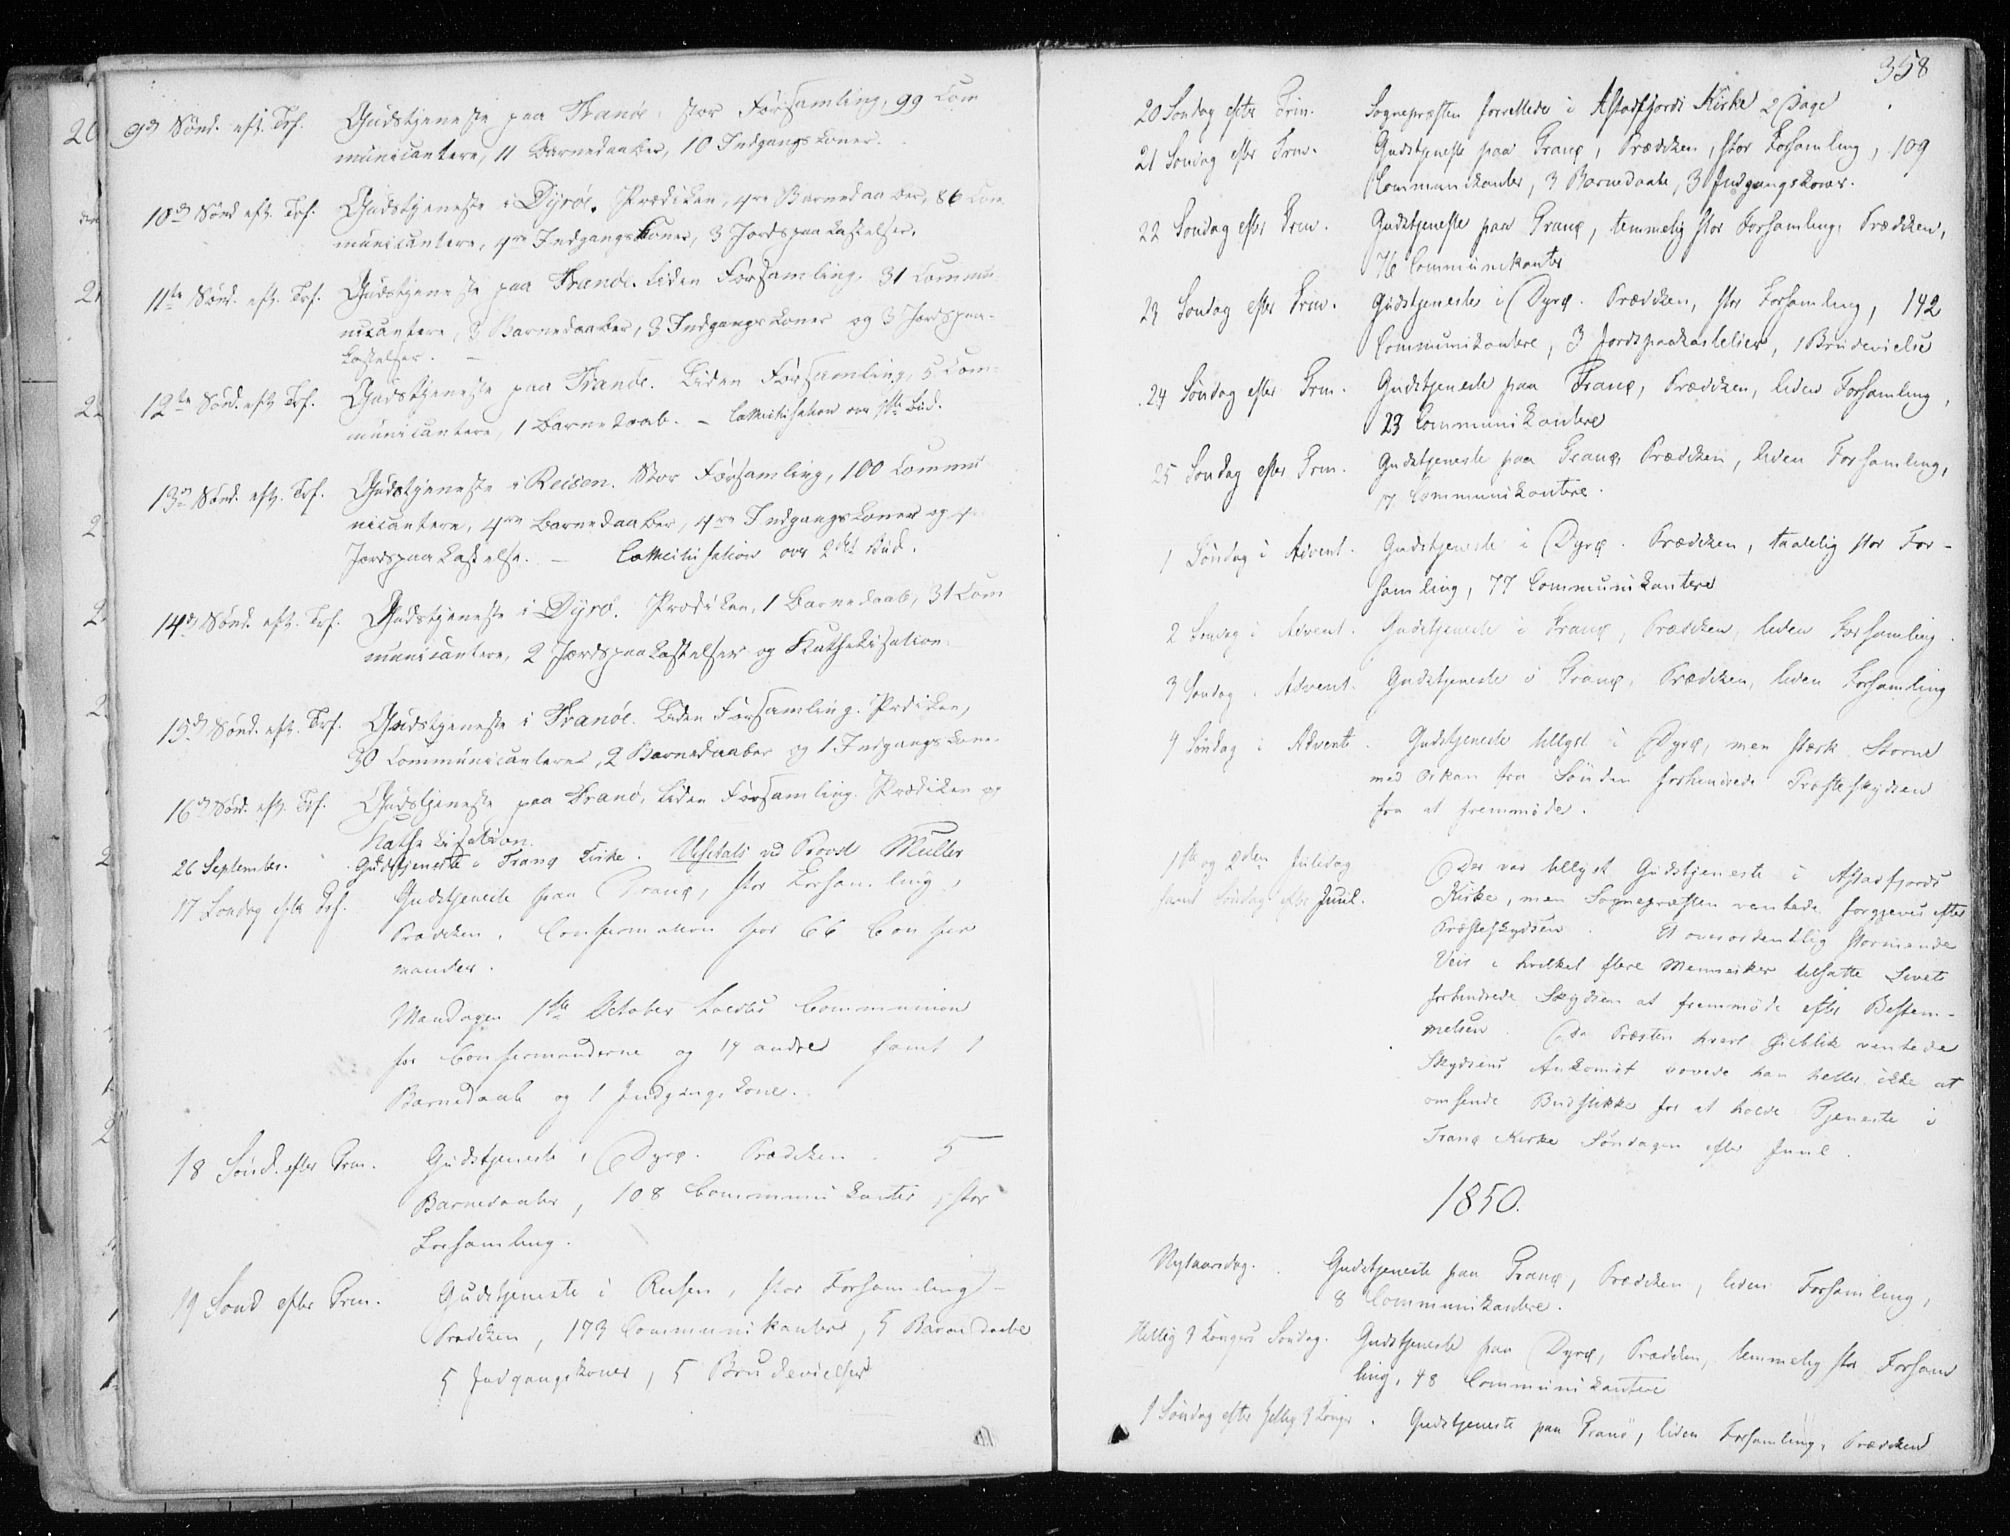 9de Sønd. eft. Trf. Gudstjeneste paa Tranöe, stor Forsamling, 99 Com
municantere, 11 Barnedaaber, 10 Indgangskoner.
10de Sønd eft. Trf. Gudstjeneste i Dyröe. Prædiken, 4re Barnedaaber, 86 Com
municantere, 4re Indgangskoner, 3 Jordspaakastelser.
11te Sønd. eft. Trf. Gudstjeneste paa Tranöe. Liden Forsamling. 31 Commu
nicantere, 3 Barnedaaber, 3 Indgangskoner og 3 Jordspaa-
kastelser. -
12te Sønd. eft. Trf. Gudstjeneste paa Tranöe. Liden Forsamling, 5 Com-
municantere, 1 Barnedaab. - Cathekisation over Bud.
13de Sønd. eft. Trf. Gudstjeneste i Reisen. Stor Forsamling, 100 Commu
nicantere, 4re Barnedaaber, 4re Indgangskoner og
Jordspaakastelse. - Cathekisation over 2det Bud.
14de Sønd. eft. Trf. Gudstjeneste i Dyrö. Prædiken, 1 Barnedaab, 31 Com
municantere, 2 Jordspaakastelser og Kathekisation.
15de Sønd. eft. Trf. Gudstjeneste i Tranöe. Liden Forsamling. Prediken,
30 Communicanteres, 2 Barnedaaber og 1 Indgangskone.
16de Sønd. eft. Trf. Gudstjeneste paa Tranö, Liden Forsamling. Prædiken og
Kathekisation.
26 September. Gudstjeneste i Tranø Kirke. Visitats ved Provst Müller
17 Søndag efter Trf. Gudstjeneste paa Tranø, stor Forsamling,
Prædiken, Confirmation for 66 Confir
mander.
Mandagen 1ste October holdtes Communion
for Confirmanderne og 14 andre samt 1
Barnedaab og 1 Indgangskone.
18 Sønd. efter Trin. Gudstjeneste i Dyrø. Prædiken. 5
Barnedaaber, 108 Communikanter, stor
Forsamling.
19 Sønd efter Trin. Gudstjeneste i Reisen, stor Forsamling -
Prædiken, 173 Communikanter, 5 Barnedaabe
5 Indgangskoner, 5 Brudevielser
358
20 Søndag efter Trin. Sognepræsten forrettede i Astafjords Kirke 2 Dage
21 Søndag efter Trin. Gudstjeneste paa Tranø, Prædiken, stor Forsamling, 109
Communikanter, 3 Barnedaabe, 3 Indgangskoner.
22 Søndag efter Trin. Gudstjeneste paa Tranø, temmelig stor Forsamling, Prædiken,
76 Communikanter
23 Søndag efter Trin. Gudstjeneste i Dyrø. Prædiken, stor Forsamling, 142
Communikantere, 3 Jordspaakastelser, 1 Brudevielse
24 Søndag efter Trin. Gudstjeneste paa Tranø, Prædiken, liden Forsamling,
23 Communikantere
25 Søndag efter Trin. Gudstjeneste paa Tranø, Prædiken, liden Forsamling,
17 Communikantere.
1 Søndag i Advent. Gudstjeneste i Dyrø. Prædiken, taalelig stor For-
samling, 77 Communikantere
2 Søndag i Advent. Gudstjeneste i Tranø, Prædiken, liden Forsamling.
3 Søndag i Advent. Gudstjeneste i Tranø, Prædiken, liden Forsamling
4 Søndag i Advent. Gudstjeneste tillyst i Dyrø, men stærk Storm
med Orkan fra Sønden forhindrede Præsteskydsen
fra at fremmøde.
1ste og 2den Juledag Der var tillyst Gudstjeneste i Astafjords
samt Søndag efter Juul. Kirke, men Sognepræsten ventede forgjeves efter
Præsteskydsen. Et overordentlig stormende
Veir i hvilket flere Mennesker tilsatte Livet
forhindrede Skydsen at fremmøde efter Bestem-
melsen. Da Præsten hvert Øieblik ventede
Skydsens Ankomst vovede han heller ikke at
omsende Budstikke for at holde Tjeneste i
Tranø Kirke Søndagen efter Juul.
1850.
Nytaarsdag. Gudstjeneste paa Tranø, Prædiken, liden Forsamling,
8 Communikantere.
Hellig 3 Kongers Søndag. Gudstjeneste paa Dyrø, Prædiken, temmelig stor Forsam
ling, 48 Communikantere
1 Søndag efter Hellig 3 Konger. Gudstjeneste paa Tranö, liden Forsamling, Prædiken